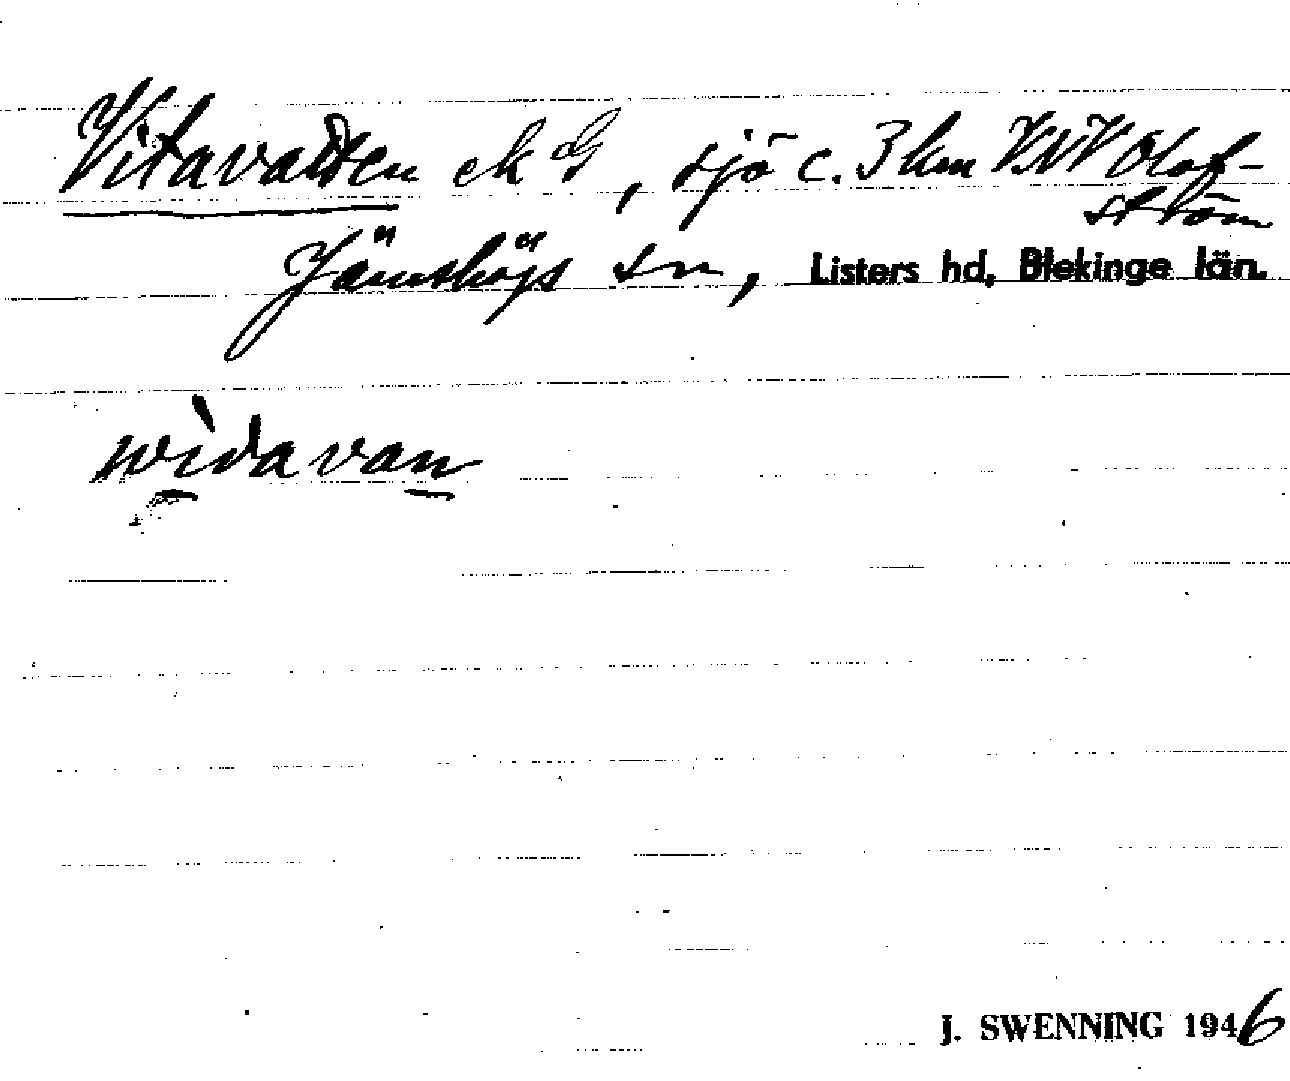 Vitavatten ek dG, sjö c. 3 km VNV Olof-
ström
Jämshögs sn, Listers hd, Blekinge län.
widavan
J. SWENNING 1946